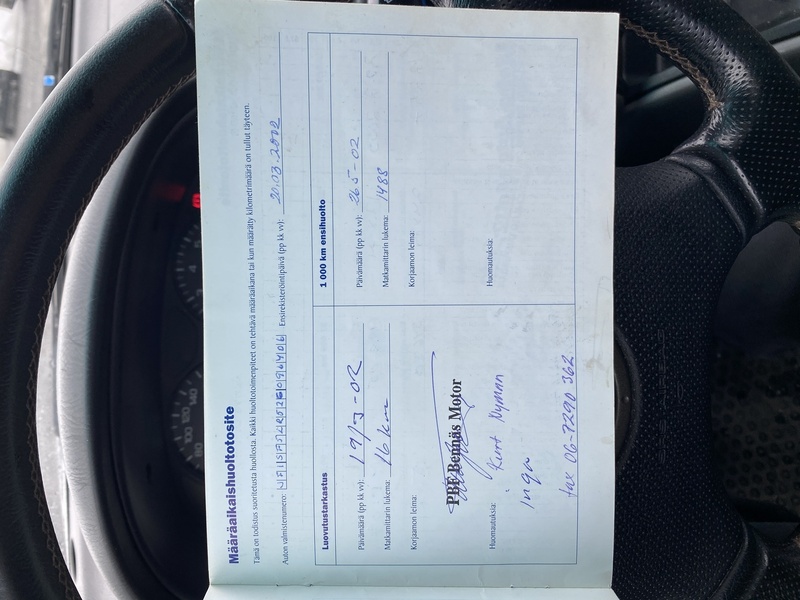 Määräaikaishuoltotosite
Tämä on todistus suoritetusta huollosta. Kaikki huoltotoimenpiteet on tehtävä määräaikana tai kun määrätty kilometrimäärä on tullut täyteen.
Auton valmistenumero: Ensirekisteröintipäivä (pp kk vv): 20.03.2002
Luovutustarkastus
Päivämäärä (pp kk vv): 19/3-02
Matkamittarin lukema: 16 km
Korjaamon leima:
PBF Bennäs Motor
Huomautuksia: Kurt Nyman
Inga
fax 06-7290 362
1 000 km ensihuolto
Päivämäärä (pp kk vv): 26.5-02
Matkamittarin lukema: 1488
Korjaamon leima:
Huomautuksia:
80
100
120
140